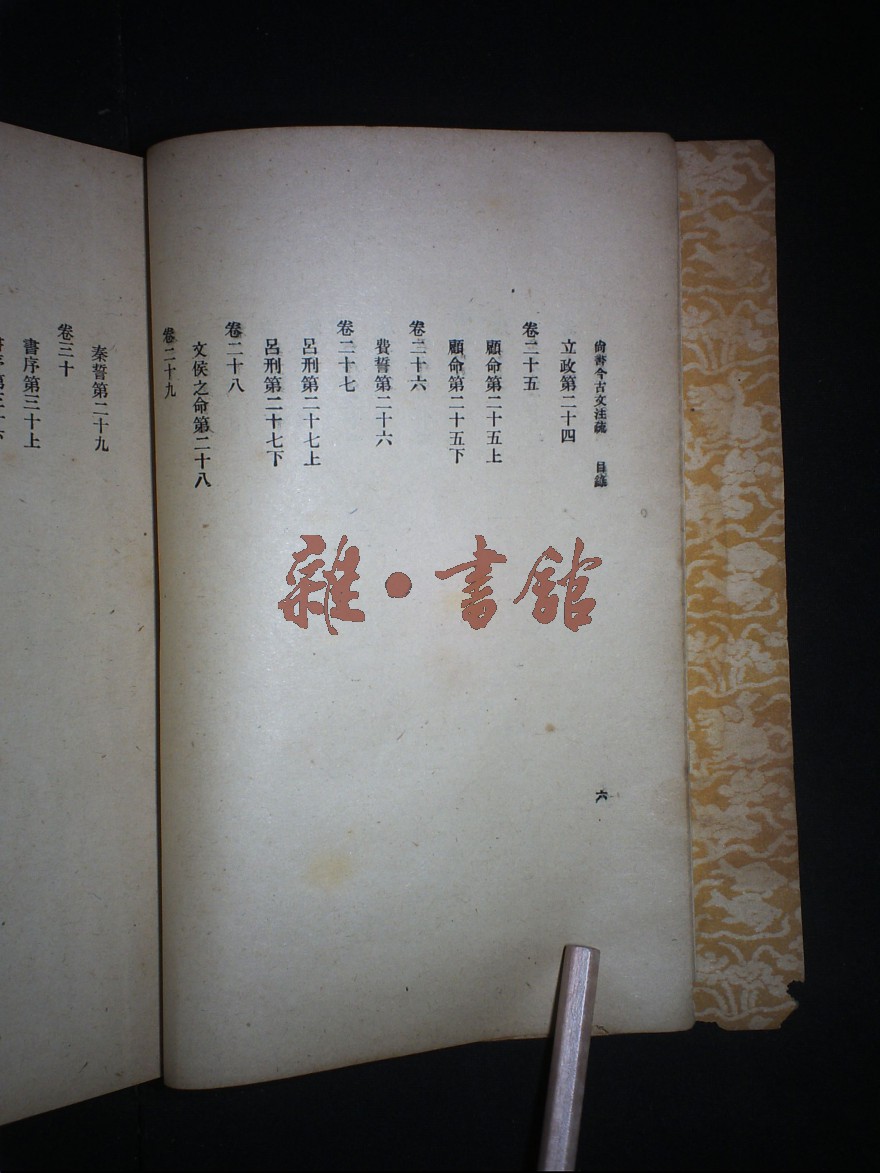 尚書今古文注疏　目錄
立政第二十四
卷二十五
顧命第二十五上
顧命第二十五下
卷二十六
費誓第二十六
卷二十七
呂刑第二十七上
呂刑第二十七下
卷二十八
文侯之命第二十八
卷二十九
六
秦誓第二十九
卷三十
書序第三十上
雜·書館